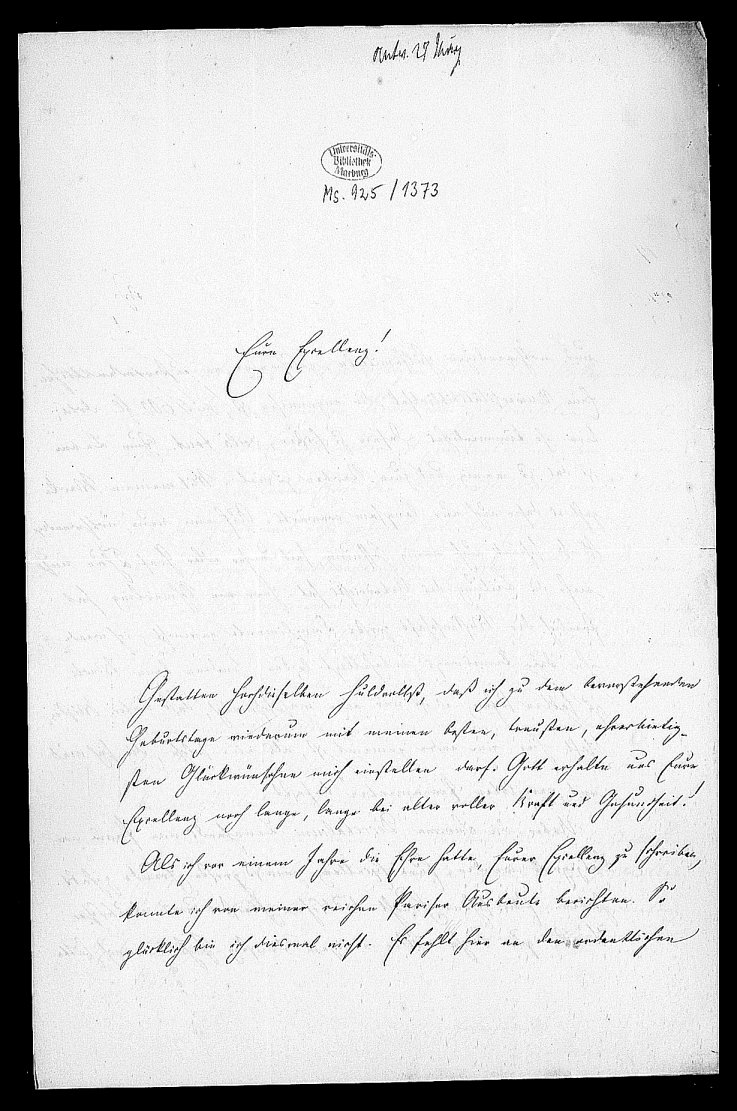 antw. 27 März
Universitäts-
Bibliothek
Marburg
Ms. 925/1373
Eure Excellenz!
Gestatten Hochdieselben huldvollst, daß ich zu dem bevorstehenden
Geburtstage wiederum mit meinen besten, treusten, ehrerbietig-
sten Glückwünschen mich einstellen darf. Gott erhalte uns Eure
Excellenz noch lange, lange bei alter voller Kraft und Gesundheit!
Als ich vor einem Jahre die Ehre hatte, Eurer Excellenz zu schreiben,
konnte ich von meiner reichen Pariser Ausbeute berichten. So
glücklich bin ich diesmal nicht. Es fehlt hier an den ordentlichen